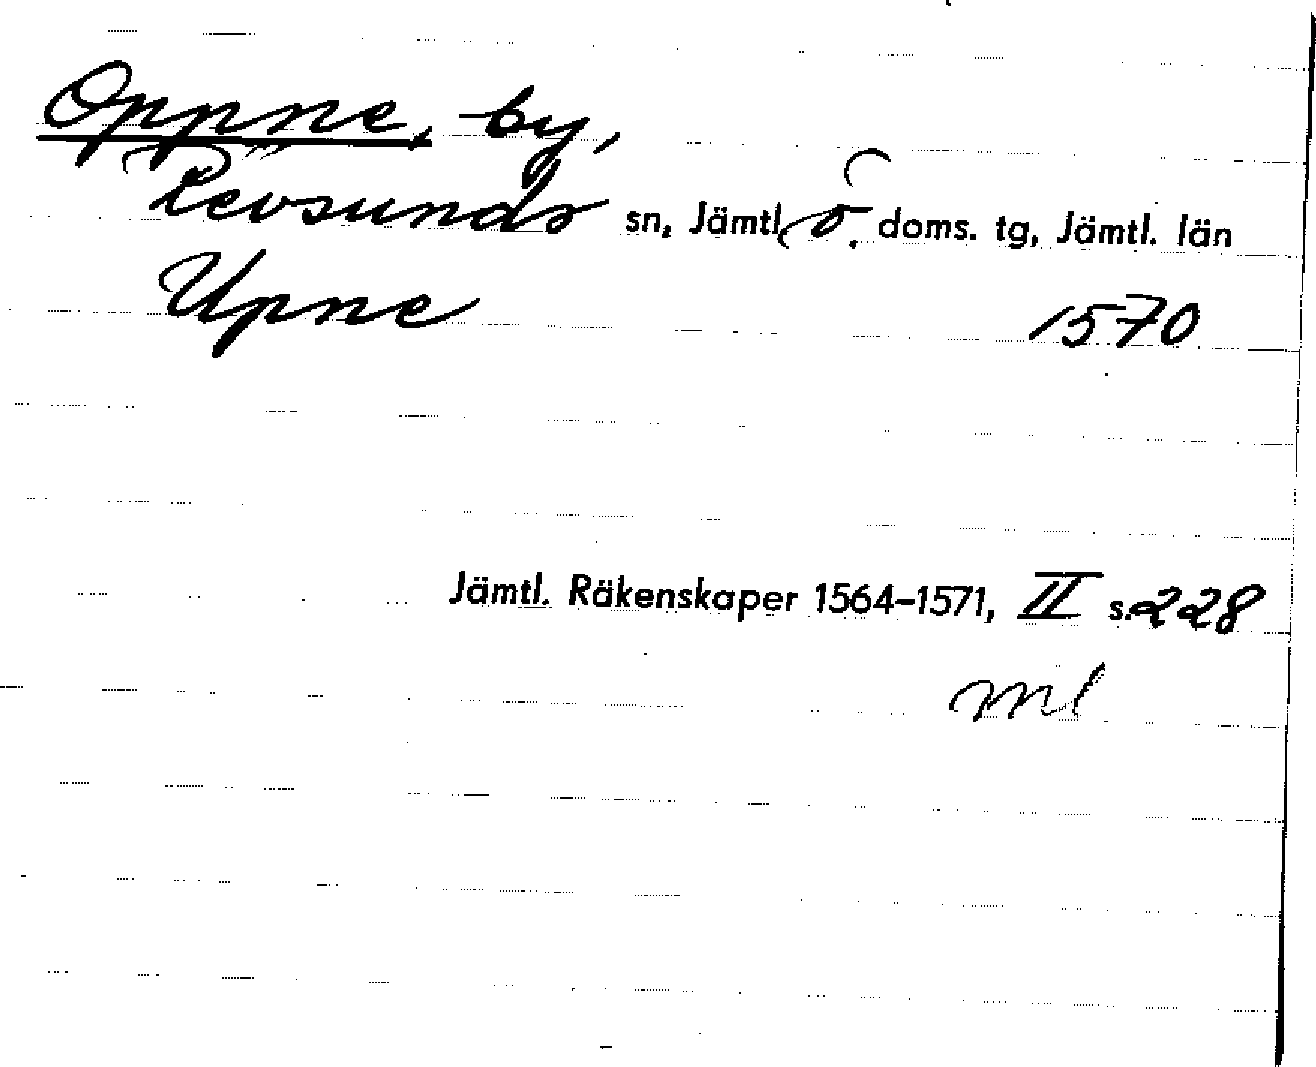 Oppne, by,
Revsunds sn, Jämtl. ö. doms. tg, Jämtl. län
Upne 1570
Jämtl. Räkenskaper 1564-1571, II s. 228